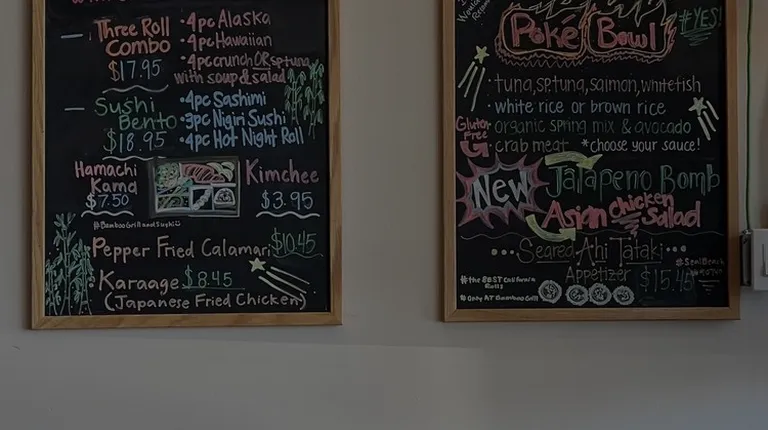 Three Roll
Combo
$17.95
• 4pc Alaska
• 4pc Hawaiian
• 4pc crunch OR sp tuna
with soup & salad
Sushi
Bento
$18.95
• 4pc Sashimi
• 3pc Nigiri Sushi
• 4pc Hot Night Roll
Hamachi
Kama
$7.50
Kimchee
$3.95
#BambooGrillandSushi
Pepper Fried Calamari $10.45
Karaage $8.45
(Japanese Fried Chicken)
Poké Bowl
#YES!
• tuna, sp.tuna, salmon, whitefish
• white rice or brown rice
• organic spring mix & avocado
• crab meat *choose your sauce!
Gluten
Free
New
Jalapeno Bomb
Asian Chicken
Salad
••• Seared Ahi Tataki •••
Appetizer $15.45
#the BEST California
Rolls
#Only AT Bamboo Grill
#SealBeach